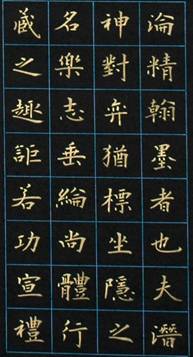 淪精翰墨者也夫潛
神對弈猶標坐隱之
名樂志垂綸尚體行
藏之趣詎若功宣禮